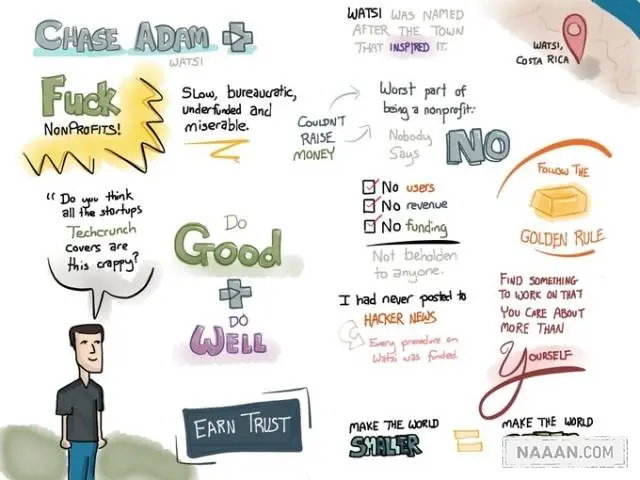 CHASE ADAM
WATSI
Fuck
NONPROFITS!
Slow, bureaucratic,
underfunded and
miserable.
WATSI WAS NAMED
AFTER THE TOWN
THAT INSPIRED IT.
WATSI,
COSTA RICA
COULDN'T
RAISE
MONEY
Worst part of
being a nonprofit:
Nobody
Says
NO
No users
No revenue
No funding
Not beholden
to anyone.
FOLLOW THE
GOLDEN RULE
"Do you think
all the startups
Techcrunch
covers are
this crappy?
DO
Good
DO
WELL
EARN TRUST
I had never posted to
HACKER NEWS
Every procedure on
Watsi was funded.
FIND SOMETHING
TO WORK ON THAT
YOU CARE ABOUT
MORE THAN
YOURSELF
MAKE THE WORLD
SMALLER
=
MAKE THE WORLD
NAAAN.COM